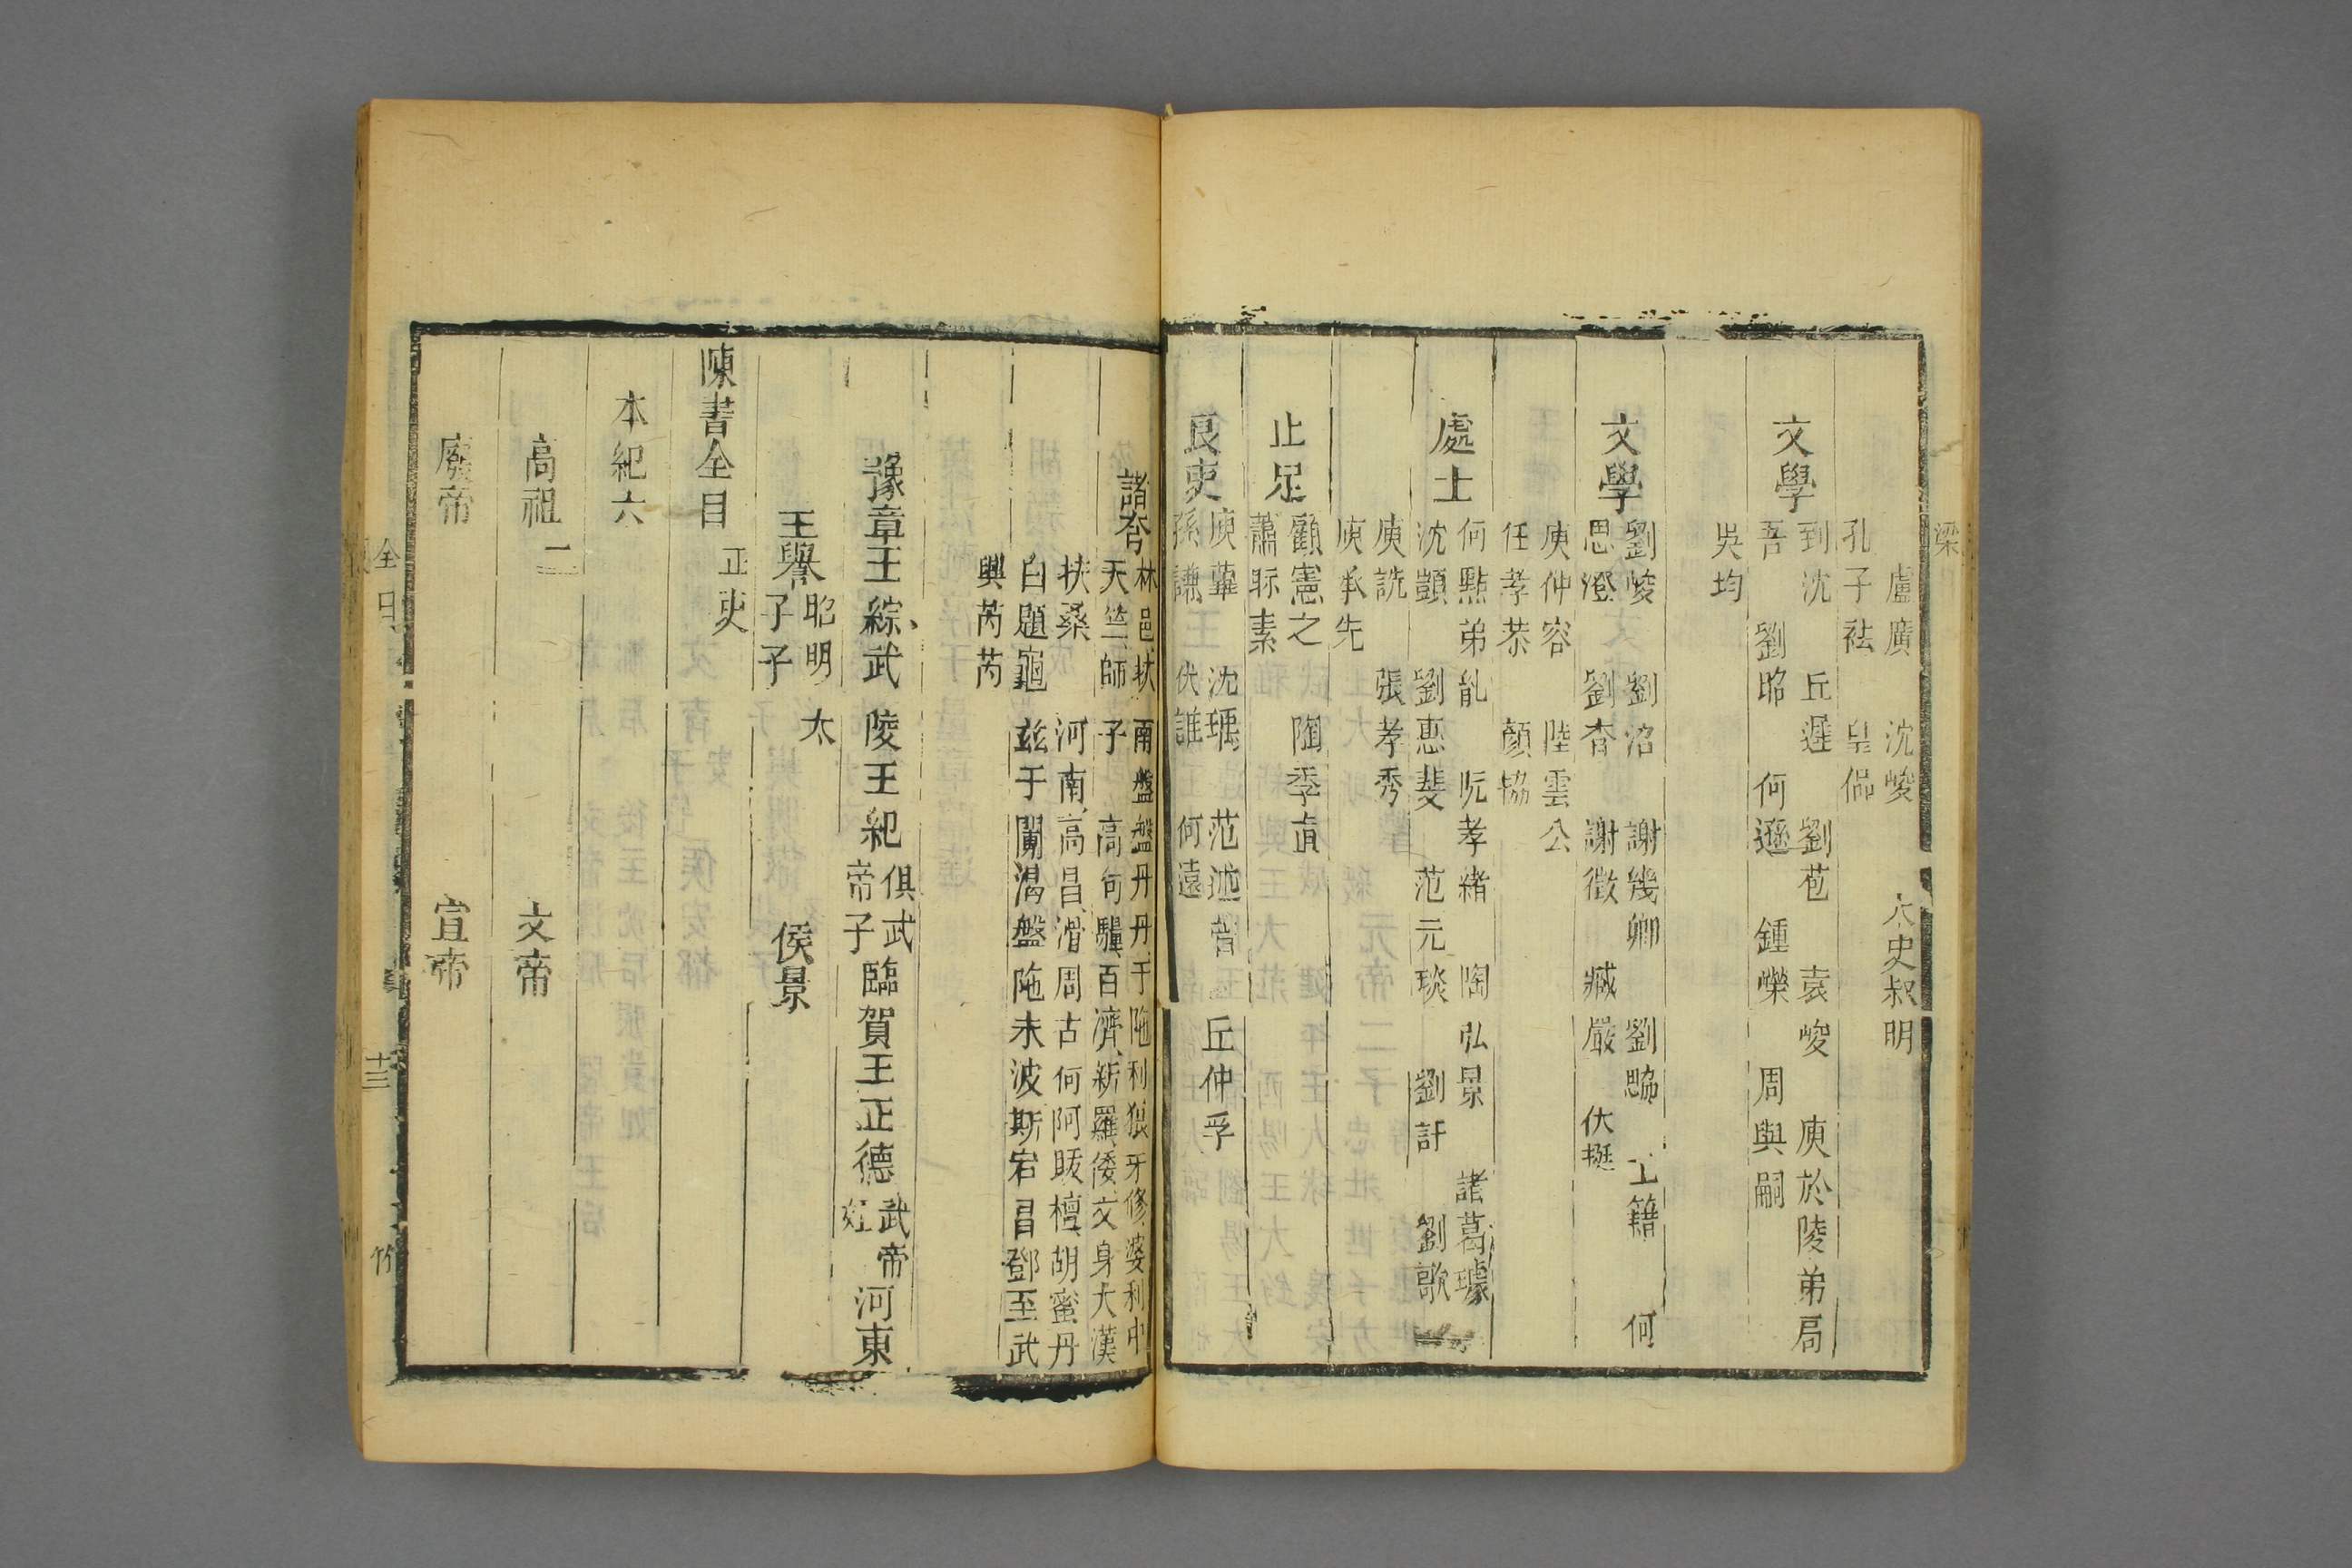 盧廣 沈峻 太史叔明
孔子袪 皇侃
文學
到沆 丘遲 劉苞 袁峻 庾於陵弟肩
吾 劉昭 何遜 鍾嶸 周興嗣
吳均
文學
劉峻 劉沼 謝幾卿 劉勰 王籍 何
思澄 劉杳 謝徵 臧嚴 伏挺
庾仲容 陸雲公
任孝恭 顏協
處士
何點弟胤 阮孝緒 陶弘景 諸葛璩
沈顗 劉惠斐 范元琰 劉訏 劉歊
庾詵 張孝秀
庾承先
止足
顧憲之 陶季直
蕭眎素
良吏
庾蓽 沈瑀 范述曾 丘仲孚
孫謙 伏誰 何遠
梁
諸夷
林邑扶南盤盤丹丹干陁利狼牙修婆利中
天竺師子 高句驪百濟新羅倭文身大漢
扶桑 河南高昌滑周古何阿跋檀胡蜜丹
白題龜茲于闐渴盤陁末波斯宕昌鄧至武
興芮芮
豫章王綜武陵王紀
俱武
帝子
臨賀王正德
武帝
姪
河東
王譽
昭明太
子子
侯景
陳書全目 正史
本紀六
高祖二 文帝
廢帝 宣帝
全目
十三
竹